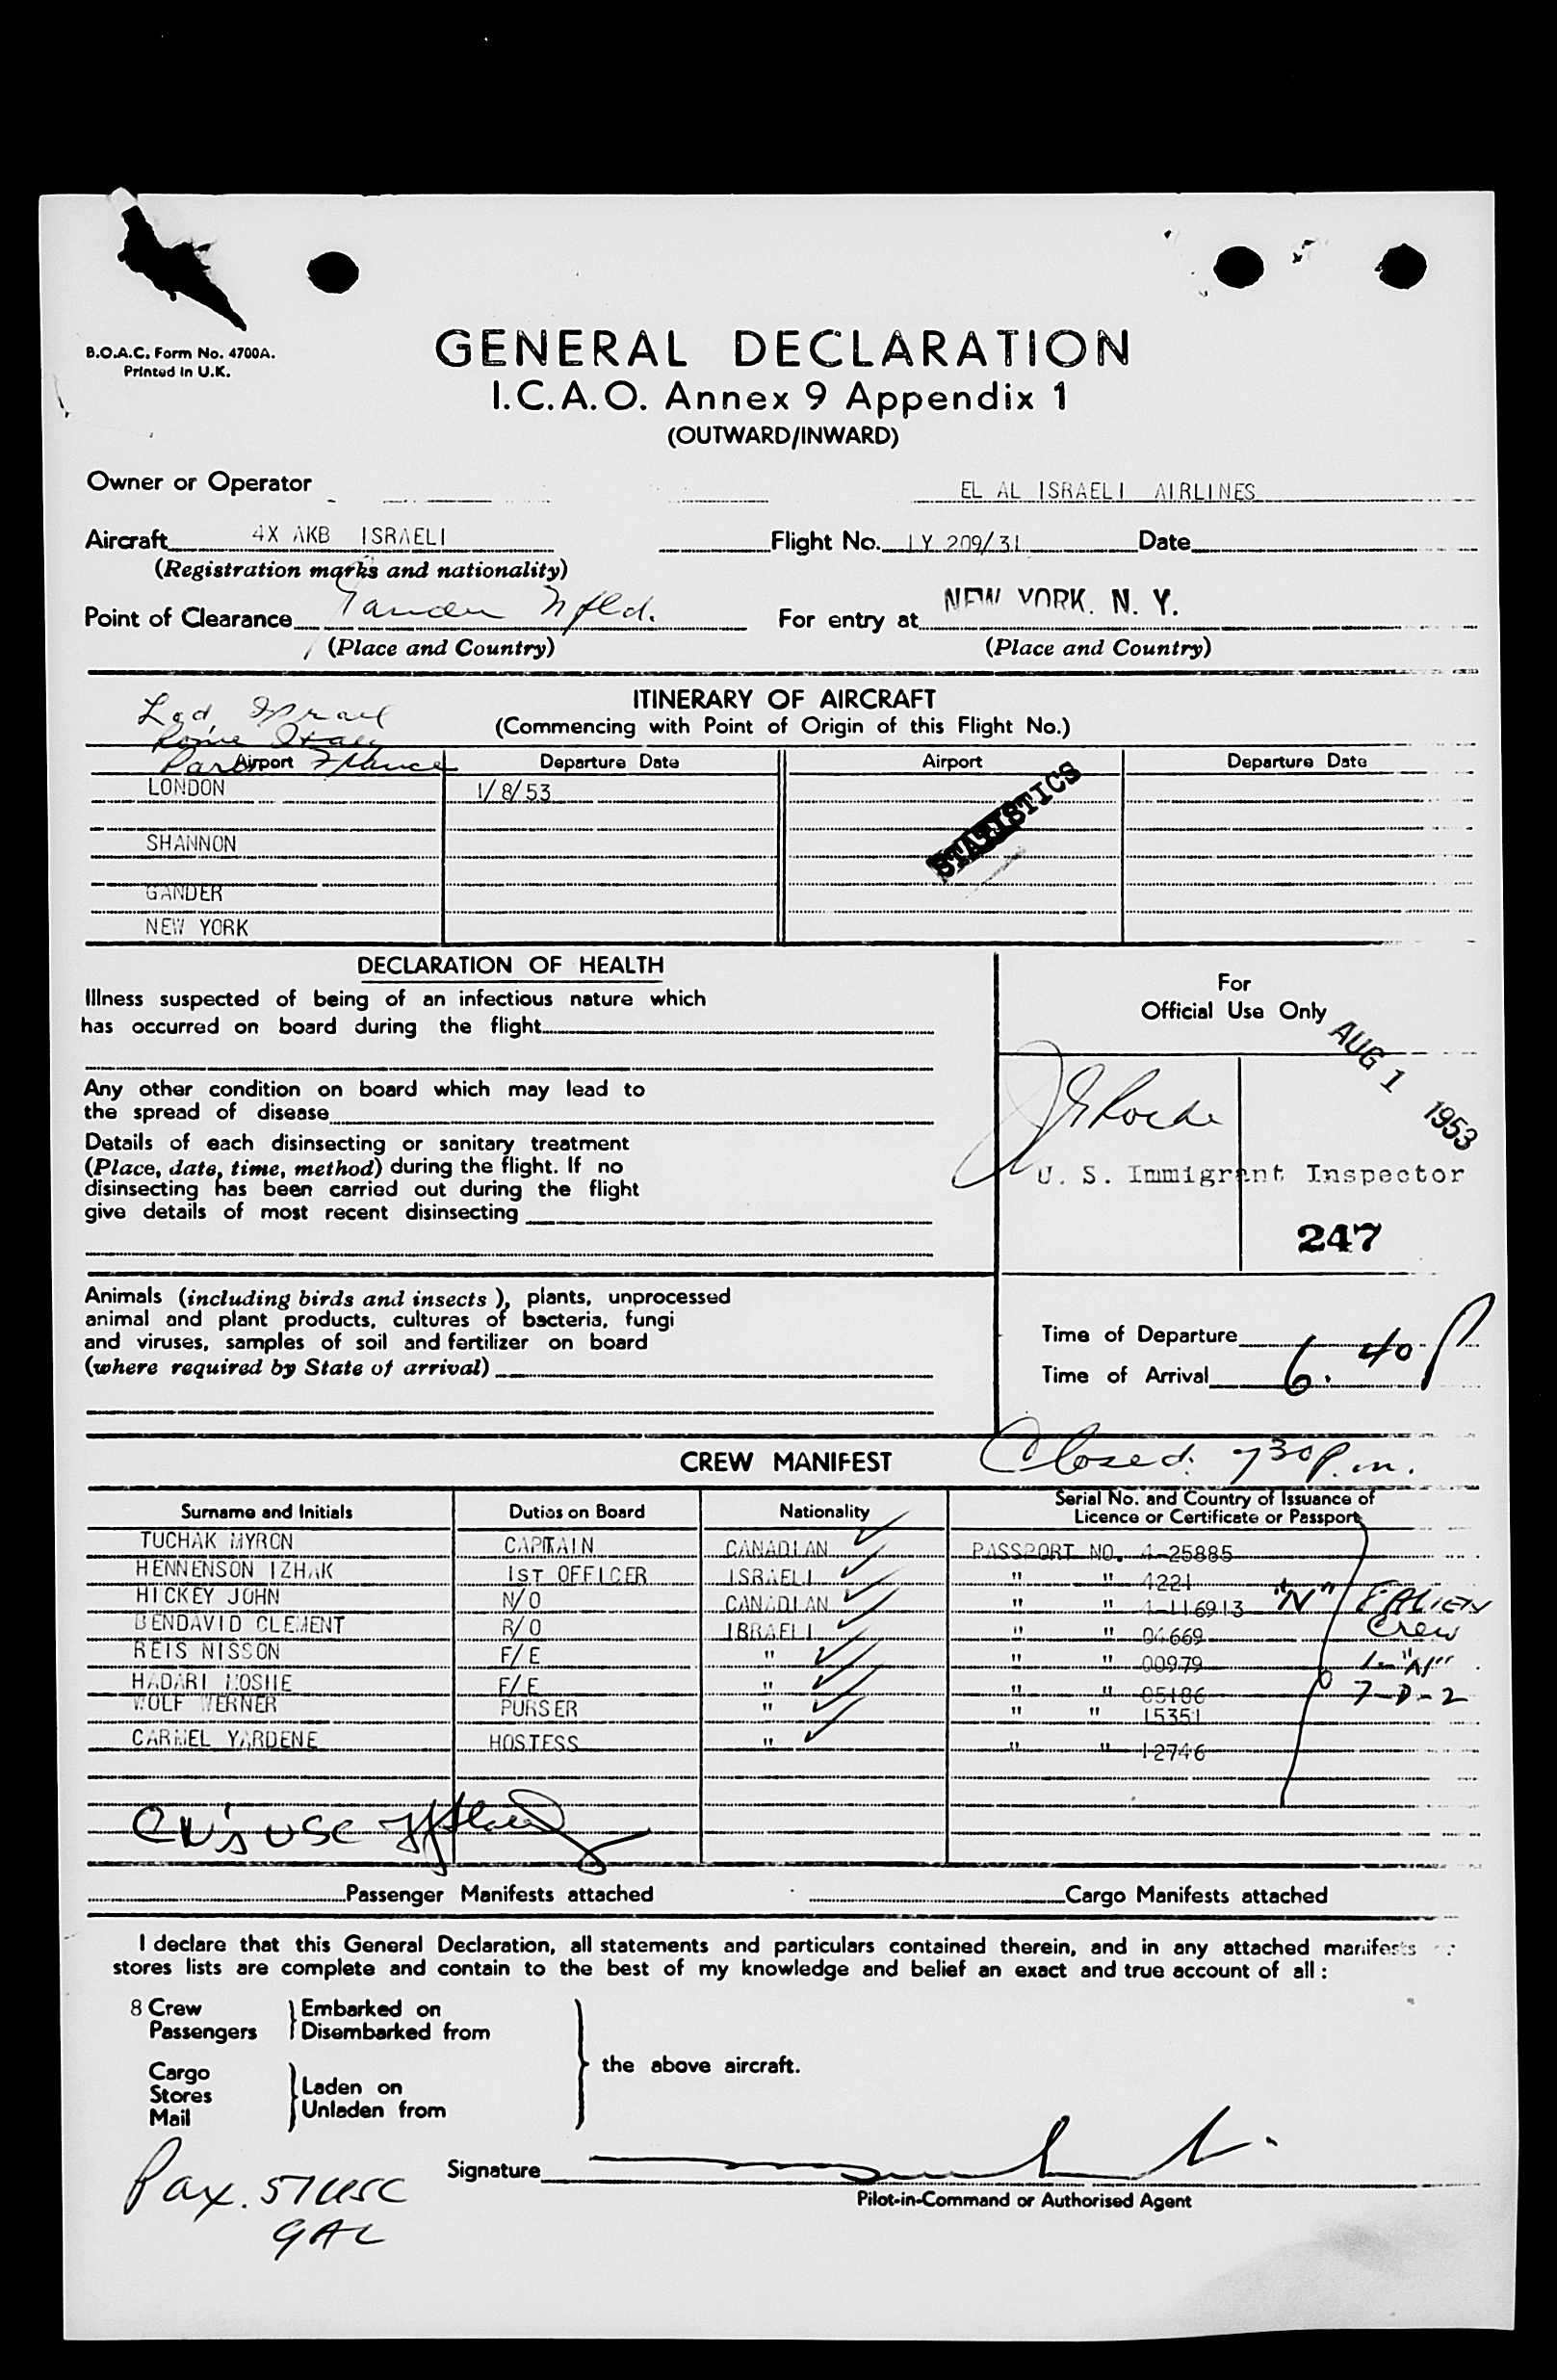 B.O.A.C. Form No. 4700A.
Printed in U.K.
GENERAL DECLARATION
I.C.A.O. Annex 9 Appendix 1
(OUTWARD/INWARD)
Owner or Operator EL AL ISRAELI AIRLINES
Aircraft 4X AKB ISRAELI Flight No. LY 209/31 Date
(Registration marks and nationality)
Point of Clearance Gander Nfld. For entry at NEW YORK, N. Y.
(Place and Country) (Place and Country)
ITINERARY OF AIRCRAFT
(Commencing with Point of Origin of this Flight No.)
Lod, Israel
Rome Italy
Paris France
Airport Departure Date Airport Departure Date
LONDON 1/8/53
STATISTICS
SHANNON
GANDER
NEW YORK
DECLARATION OF HEALTH
Illness suspected of being of an infectious nature which
has occurred on board during the flight
Any other condition on board which may lead to
the spread of disease
Details of each disinsecting or sanitary treatment
(Place, date, time, method) during the flight. If no
disinsecting has been carried out during the flight
give details of most recent disinsecting
Animals (including birds and insects), plants, unprocessed
animal and plant products, cultures of bacteria, fungi
and viruses, samples of soil and fertilizer on board
(where required by State of arrival)
For
Official Use Only
AUG 1 1953
U. S. Immigrant Inspector
247
Time of Departure
Time of Arrival 6.40 P
CREW MANIFEST Closed 7 30 p.m.
Surname and Initials Duties on Board Nationality Serial No. and Country of Issuance of
Licence or Certificate or Passport
TUCHAK MYRON CAPTAIN CANADIAN PASSPORT NO. 4-25885
HENNENSON IZHAK 1ST OFFICER ISRAELI " " 4221
HICKEY JOHN N/O CANADIAN " " 4-116913 "N" 8 Alien
BENDAVID CLEMENT R/O IBRAELI " " 04669 Crew
REIS NISSON F/E " " " 00979 1-"N"
HADARI MOSHE F/E " " " 05186 7-D-2
WOLF WERNER PURSER " " " 15351
CARMEL YARDENE HOSTESS " " " 12746
Passenger Manifests attached Cargo Manifests attached
I declare that this General Declaration, all statements and particulars contained therein, and in any attached manifests or
stores lists are complete and contain to the best of my knowledge and belief an exact and true account of all :
8 Crew Embarked on
Passengers Disembarked from
the above aircraft.
Cargo
Stores Laden on
Mail Unladen from
Signature
Pilot-in-Command or Authorised Agent
Pax. 57 USC
9 AL